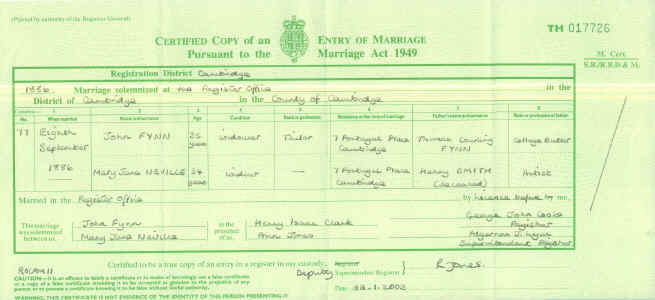 (Printed by authority of the Registrar General)
TM 017726
CERTIFIED COPY of an ENTRY OF MARRIAGE
Pursuant to the Marriage Act 1949
M. Cert.
S.R./R.B.D.& M.
Registration District Cambridge
1886. Marriage solemnized at the Register Office in the
District of Cambridge in the County of Cambridge
1 2 3 4 5 6 7 8
No. When married Name and surname Age Condition Rank or profession Residence at the time of marriage Father's name and surname Rank or profession of father
77 Eighth September 1886 John FYNN 25 years widower Tailor 7 Portugal Place Cambridge FYNN College Butler
Mary Jane NEVILLE 34 years widow — 7 Portugal Place Cambridge Henry SMITH (deceased) Artist
Married in the Register Office by licence before by me,
This marriage was solemnized between us, John Fynn Mary Jane Neville in the presence of us, Henry Isaac Clark Ann Jones
George John
Registrar
Superintendent Registrar
Certified to be a true copy of an entry in a register in my custody,
Deputy Superintendent Registrar R Jones.
Date 22-1-2002
CAUTION:—It is an offence to falsify a certificate or to make or knowingly use a false certificate
or a copy of a false certificate intending it to be accepted as genuine to the prejudice of any
person or to possess a certificate knowing it to be false without lawful authority.
WARNING: THIS CERTIFICATE IS NOT EVIDENCE OF THE IDENTITY OF THE PERSON PRESENTING IT